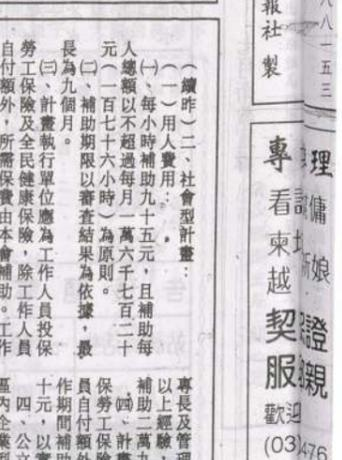 (續昨)二、社會型計畫：
(一)用人費用：
㈠、每小時補助九十五元，且補助每
人總額以不超過每月一萬六千七百二十
元(一百七十六小時)為原則。
㈡、補助期限以審查結果為依據，最
長為九個月。
㈢、計畫執行單位應為工作人員投保
勞工保險及全民健康保險，除工作人員
自付額外，所需保費由本會補助。工作
專長及管理
以上經驗，
補助二萬九
㈣、計畫
保勞工保
員自付額外
作期間補助
十元，以實
四、公文
區內企業型
八八一五三
報社 製
理
專
看柬越
傭
新娘
契
服
證
親
歡迎
(03)476